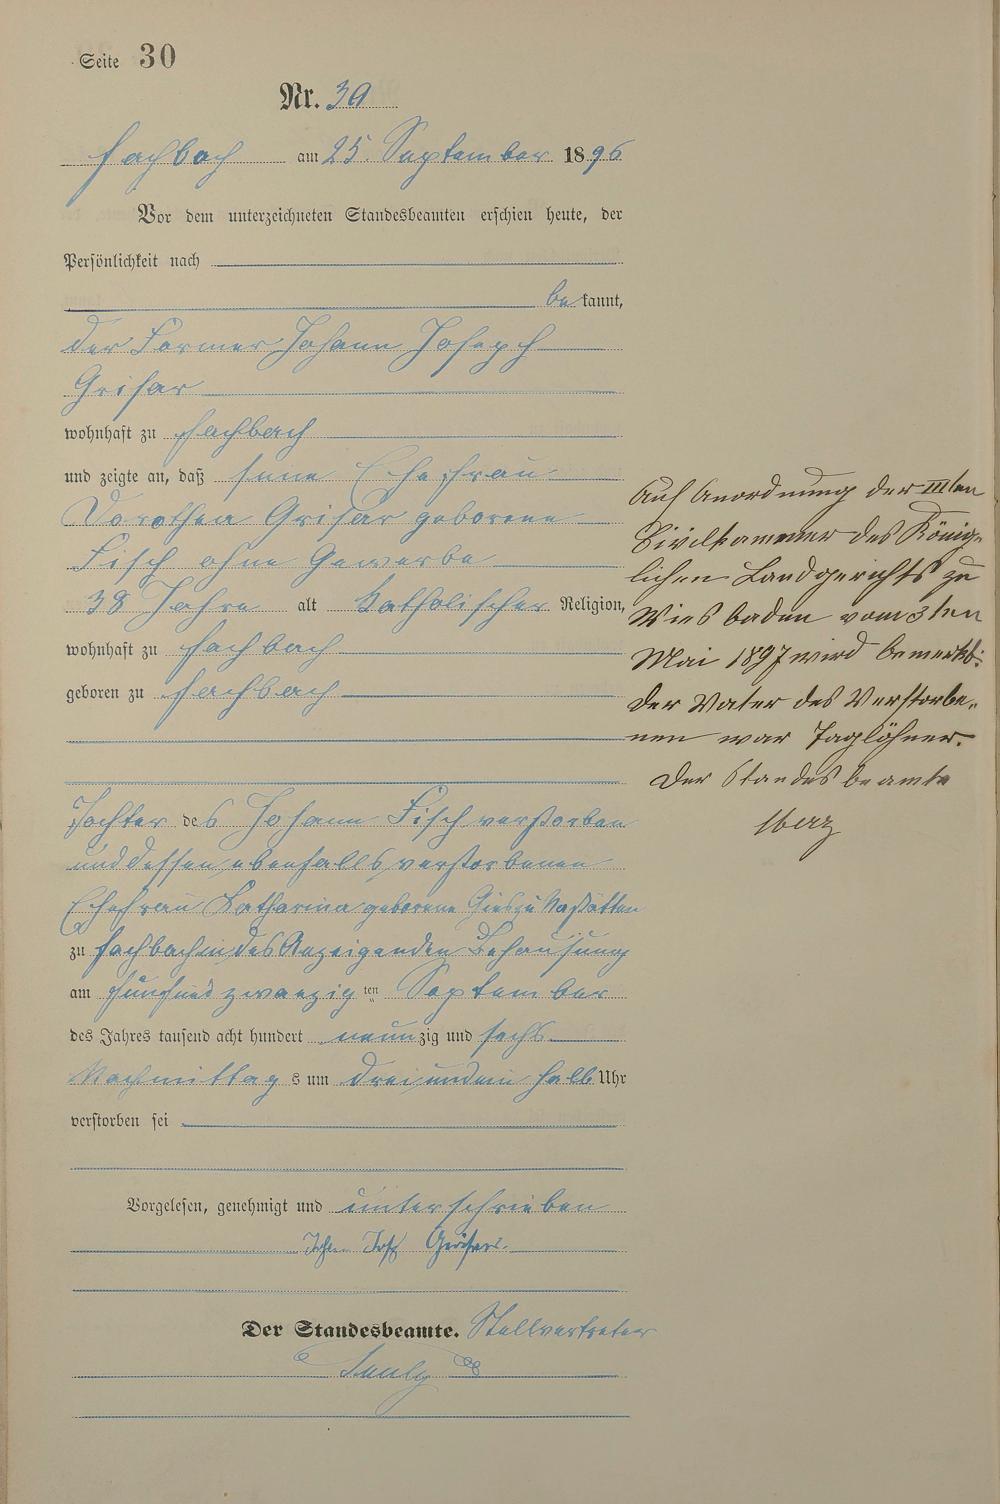 Seite 30
Nr. 30
Fachbach am 25. September 1896
Vor dem unterzeichneten Standesbeamten erschien heute, der
Persönlichkeit nach
bekannt,
der Former Johann Joseph
Grisar
wohnhaft zu Fachbach
und zeigte an, daß seine Ehefrau
Dorothea Grisar geborene
Fisch ohne Gewerbe
38 Jahre alt katholischer Religion,
wohnhaft zu Fachbach
geboren zu Fachbach
Tochter des Johann Fisch verstorben
und dessen ebenfalls verstorbenen
Ehefrau Katharina geborene zu Nastätten
zu Fachbach in des Anzeigenden Behausung
am fünfundzwanzigten September
des Jahres tausend acht hundert neunzig und sechs
Nachmittags um drei und ein halb Uhr
verstorben sei
Vorgelesen, genehmigt und unterschrieben
Joh. Jos. Grisar.
Der Standesbeamte. Stellvertreter
Auf Anordnung der IIIten
Civilkammer des König-
lichen Landgerichts zu
Wiesbaden vom 3ten
Mai 1897 wird bemerkt:
Der Vater des Verstorbe-
nen war Taglöhner.
Der Standesbeamte